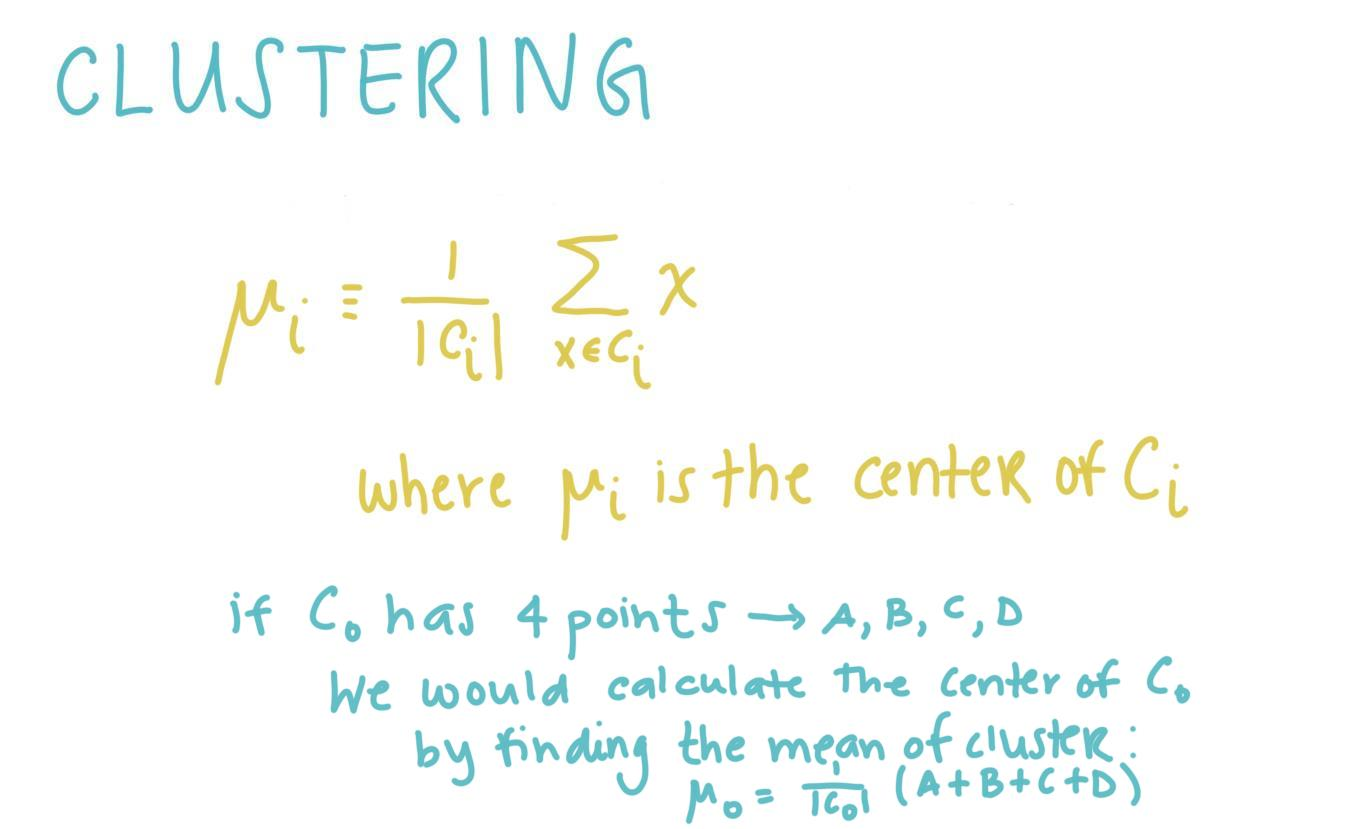 CLUSTERING
μᵢ ≡ 1/|Cᵢ| Σ x∈Cᵢ x
where μᵢ is the center of Cᵢ
if C₀ has 4 points → A, B, C, D
We would calculate the center of C₀
by finding the mean of cluster:
μ₀ = 1/|C₀| (A+B+C+D)